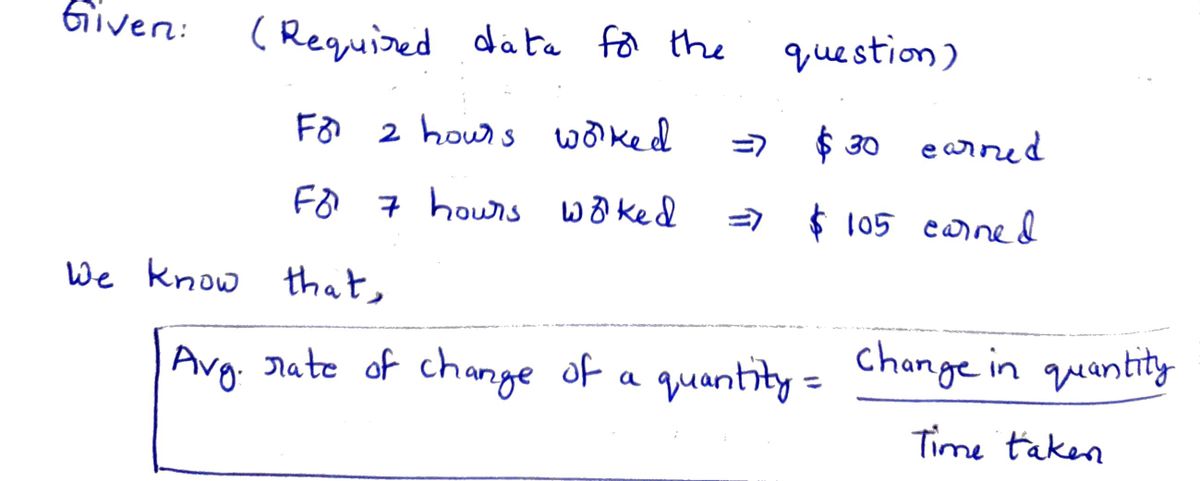 Given: (Required data for the question)
For 2 hours worked ⇒ $ 30 earned
For 7 hours worked ⇒ $ 105 earned
We know that,
Avg. rate of change of a quantity = Change in quantity
Time taken